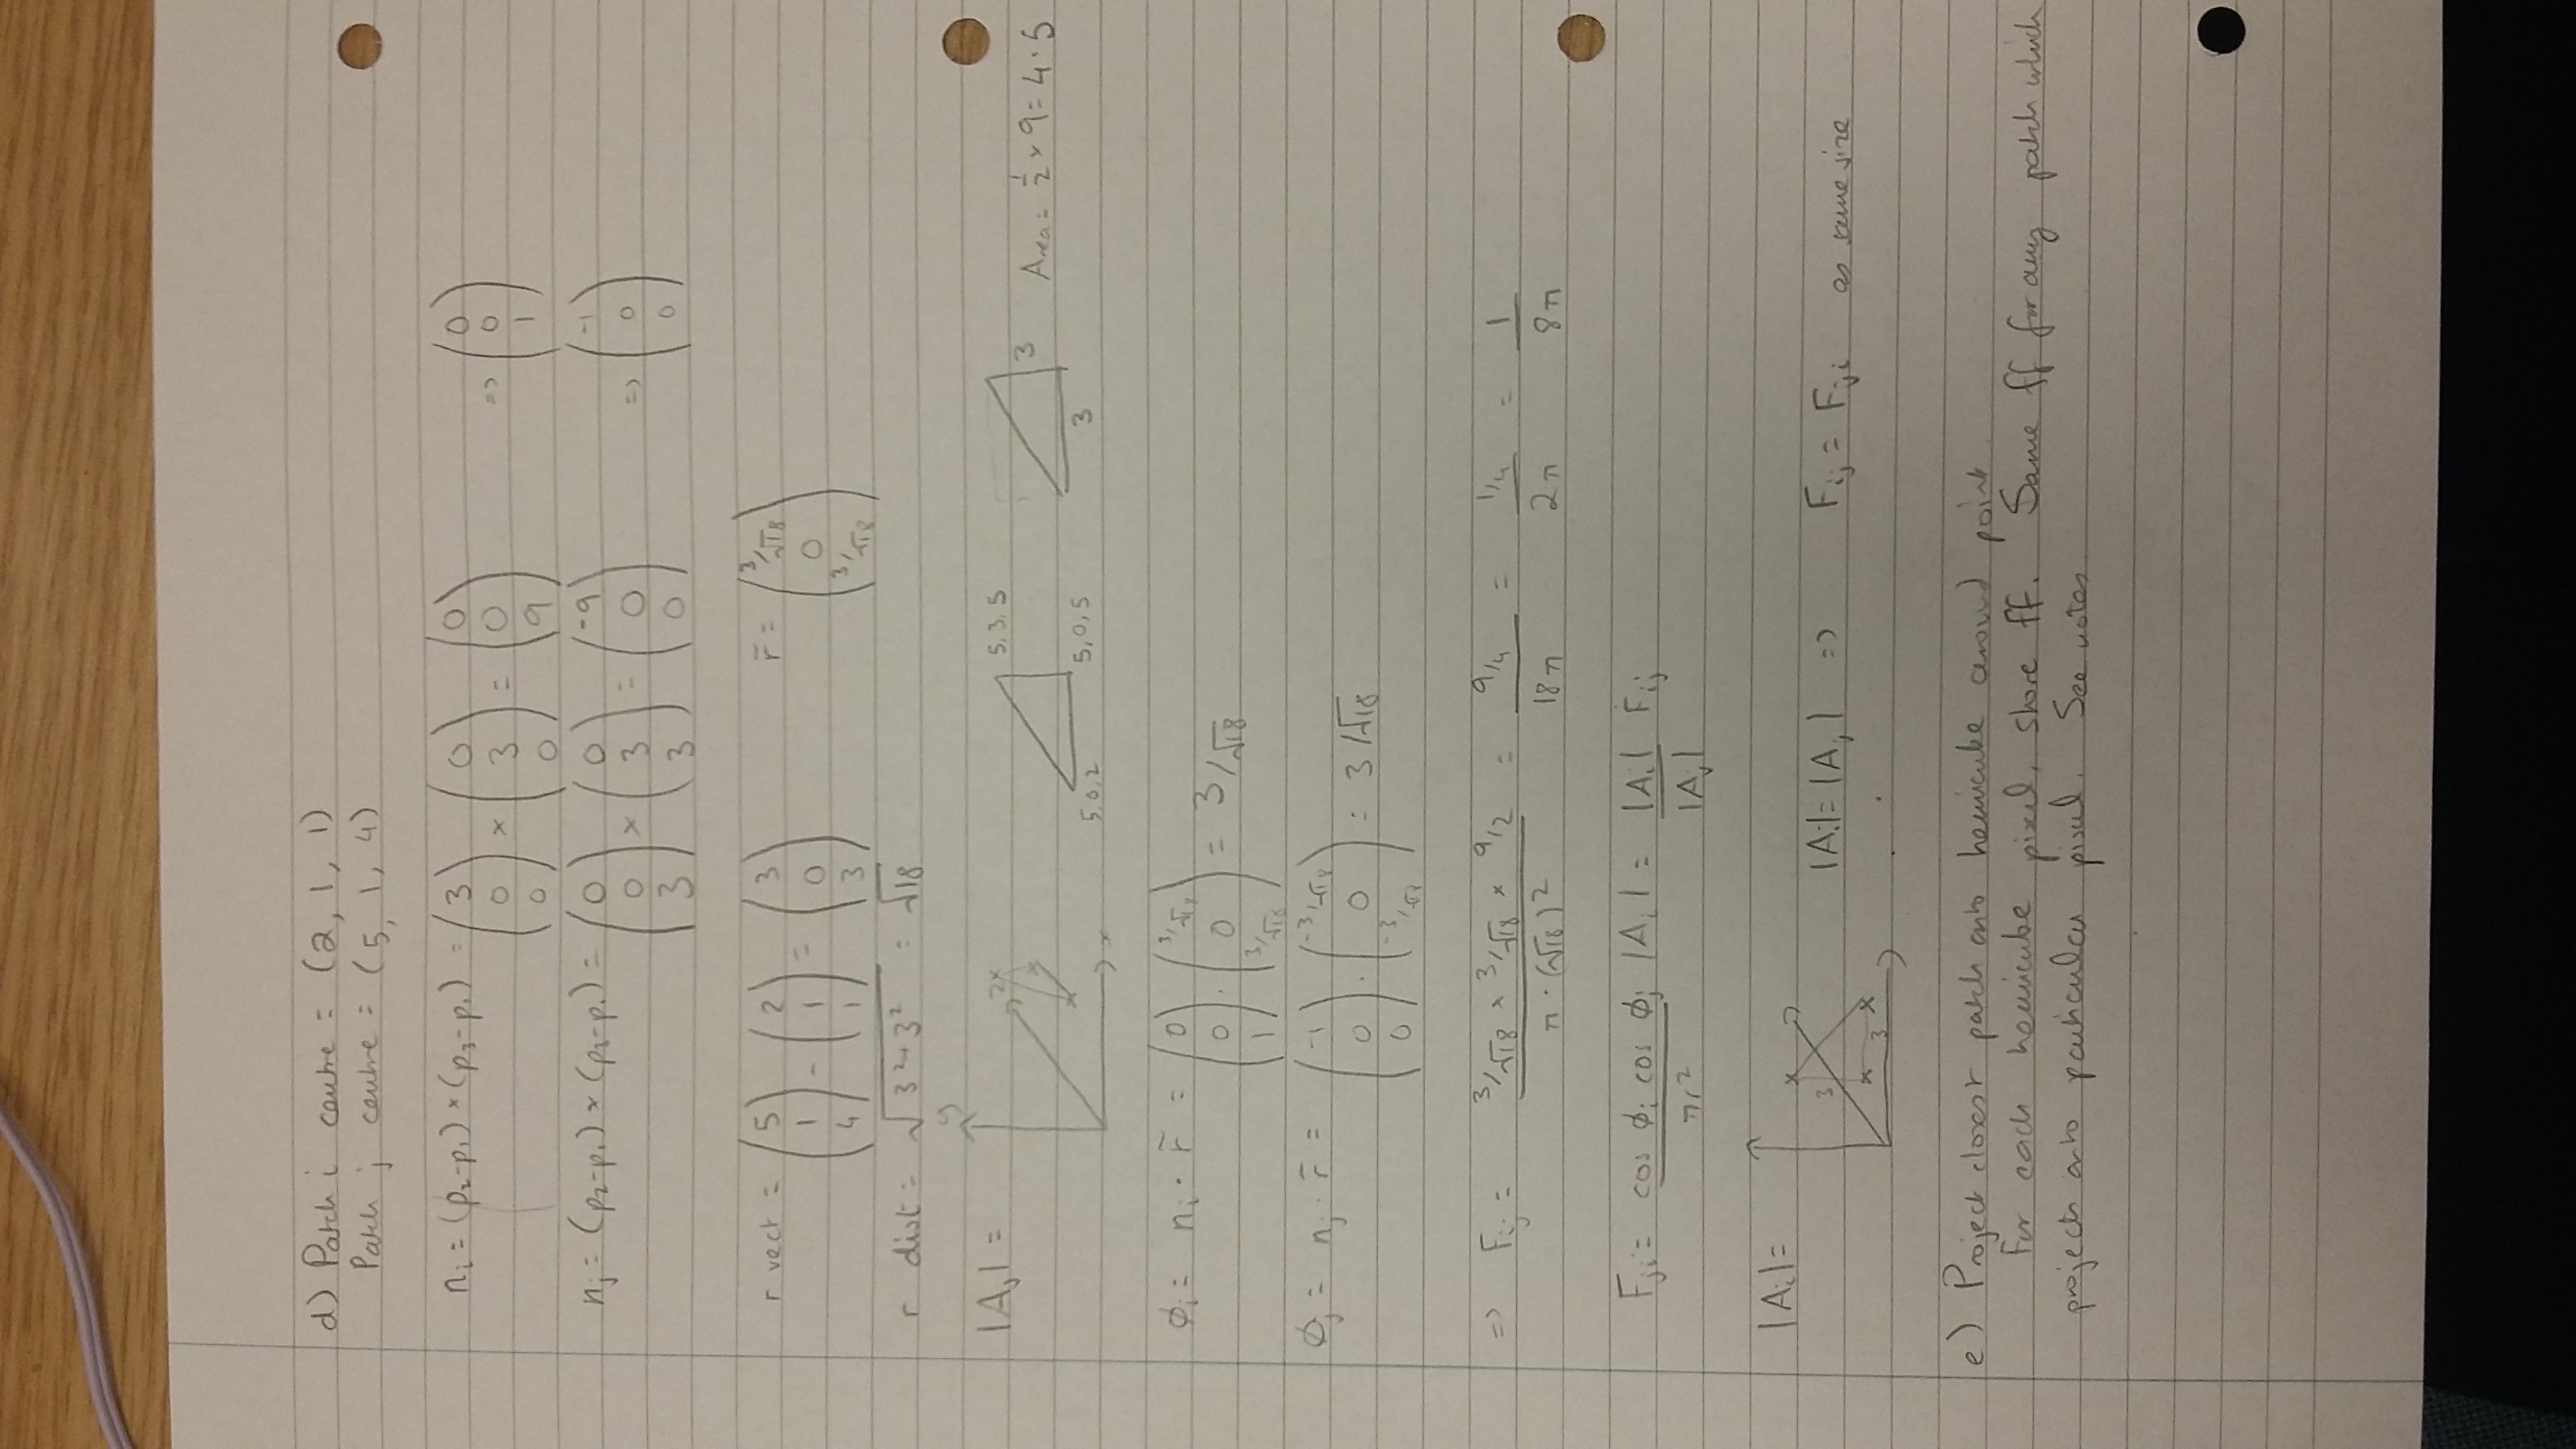 d) Patch i centre = (2, 1, 1)
Patch j centre = (5, 1, 4)
nᵢ = (p₂-p₁) × (p₃-p₁) = (3 0 0) × (0 3 0) = (0 0 9) => (0 0 1)
nⱼ = (p₂-p₁) × (p₃-p₁) = (0 0 3) × (0 3 3) = (-9 0 0) => (-1 0 0)
r vect = (5 1 4) - (2 1 1) = (3 0 3) r̄ = (3/√18 0 3/√18)
r dist = √(3²+3²) = √18
|Aⱼ| = y x 5,0,2 5,3,5 5,0,5 3 3 Area = 1/2 × 9 = 4.5
ϕᵢ = nᵢ · r̄ = (0 0 1) · (3/√18 0 3/√18) = 3/√18
ϕⱼ = nⱼ · r̄ = (-1 0 0) · (-3/√18 0 -3/√18) = 3/√18
=> Fᵢⱼ = (3/√18 × 3/√18 × 9/2) / (π · (√18)²) = (9/4) / 18π = (1/4) / 2π = 1 / 8π
Fⱼᵢ = (cos ϕᵢ cos ϕⱼ / πr²) |Aᵢ| = (|Aᵢ| / |Aⱼ|) Fᵢⱼ
|Aᵢ| = 3 3 |Aᵢ| = |Aⱼ| => Fᵢⱼ = Fⱼᵢ as same size
e) Project closest patch onto hemicube around point
For each hemicube pixel, store ff. Same ff for any patch which
projects onto particular pixel. See notes